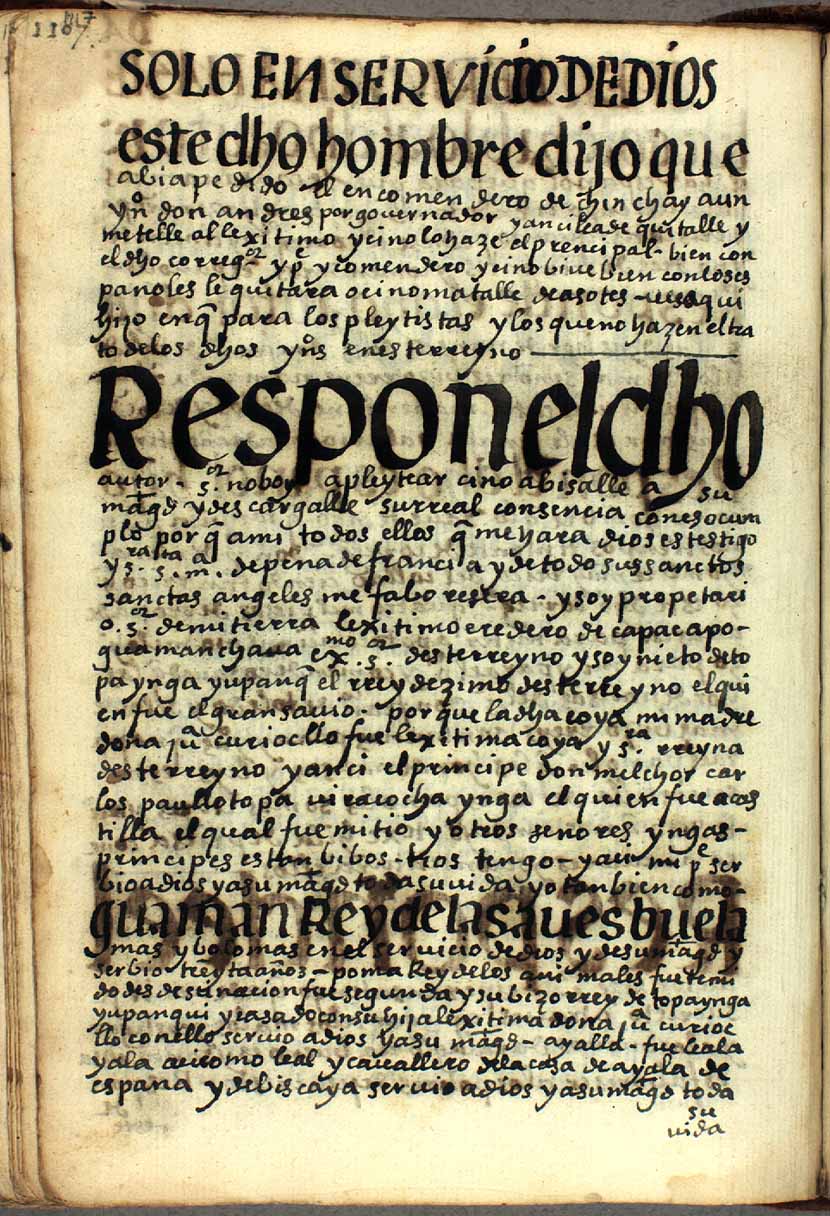 1107
SOLO EN SERVICIO DE DIOS
este dho hombre dijo que
abia pedido el encomendero de chinchay a un
yno don andres por governador y anci lea de quitalle y
metelle al lexitimo y ci no lo haze el prencipal bien con
el dho corregor y pe y comendero y ci no bive bien con los es
panoles le quitara o ci no matalle de asotes
hijo en q para los pleytistas y los que no hazen el tra
to de los dhos yns en es terreyno
Responel dho
autor. sor no boy a pleytear cino abisalle a su
magd y descargalle su rreal consencia con eso cum
plo por q a mi todos ellos q me hara dios es testigo
y sra sta ma de pena de francia y de todo sus sanctos
sanctas angeles me faboresera y soy propetari
o. sor de mi tierra lexitimo eredero de capac apo
guamanchaua exmo sor desterreyno y soy nieto de to
pa ynga yupanq el rrey dezimo desterreyno el qui
en fue el gran savio porque la dha coya mi madre
dona jua curi ocllo fue lexitima coya y sra rreyna
desterreyno y anci el principe don melchor car
los paullo topa uiracocha ynga el quien fue a cas
tilla el qual fue mi tio y otros senores yngas
principes estan bibos tios tengo y aci mi pe ser
bio a dios y a su magd toda su uida yo tanbien como
guaman Rey de las aues buela
mas y bolo mas en el servicio de dios y de su magd y
serbio treynta años poma Rey de los animales fue temi
do desdes su nacion fue segunda y su bizorrey de topa ynga
yupanqui y casado con su hija lexitima dona jua curi oc
llo con ello servio a dios y a su magd ayalla fue leala
yala aci como leal y cavallero de la casa de ayala de
espana y de biscaya servio a dios y a su magd toda
su
uida